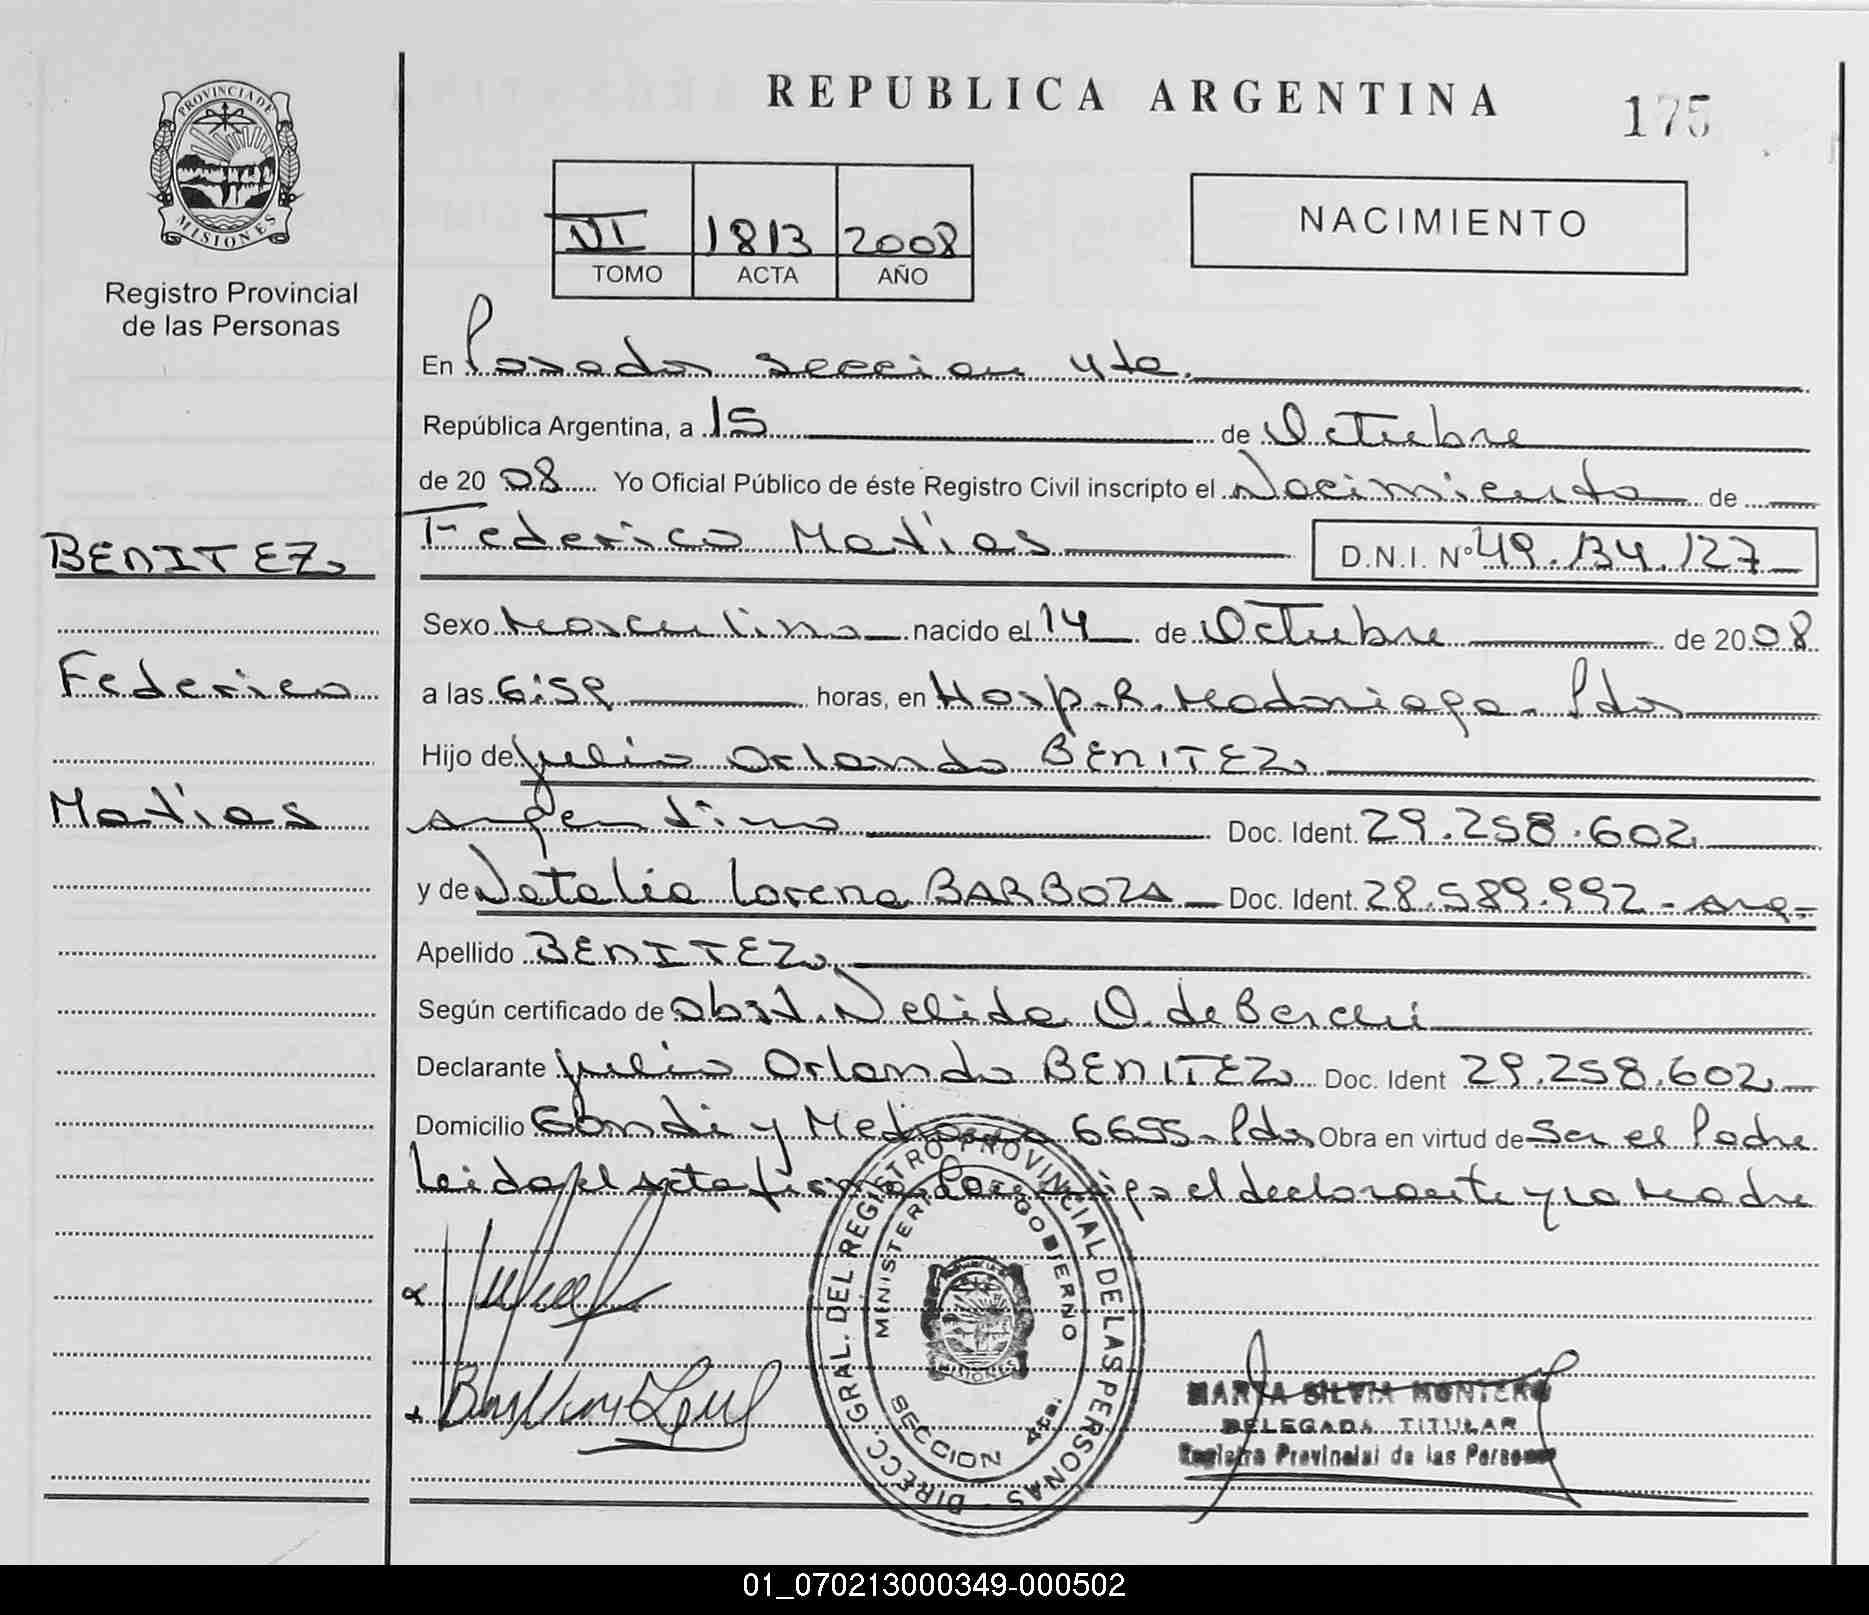 REPUBLICA ARGENTINA
175
PROVINCIA DE
MISIONES
Registro Provincial
de las Personas
VI 1813 2008
TOMO ACTA AÑO
NACIMIENTO
En Posadas seccion 4ta.
República Argentina, a 15 de Octubre
de 20 08 Yo Oficial Público de éste Registro Civil inscripto el Nacimiento de
Federico Matías D.N.I. Nº 49.134.127
BENITEZ
Federico
Matías
Sexo Masculino nacido el 14 de Octubre de 20 08
a las 6:59 horas, en Hosp. R. Madariaga. Pdas
Hijo de Julio Orlando BENITEZ
argentino Doc. Ident. 29.258.602
y de Natalia Lorena BARBOZA Doc. Ident. 28.589.992 - arg-
Apellido BENITEZ
Según certificado de obst. Nelida O. de
Declarante Julio Orlando BENITEZ Doc. Ident 29.258.602
Domicilio y 6655 - Pdas Obra en virtud de Ser el Padre
Leida el acta firma el declarante y la Madre
DIRECC. GRAL. DEL REGISTRO PROVINCIAL DE LAS PERSONAS
MINISTERIO GOBIERNO
MISIONES
SECCION 4ta.
MARTA SILVIA MONTERO
DELEGADA TITULAR
Registro Provincial de las Personas
01_070213000349-000502